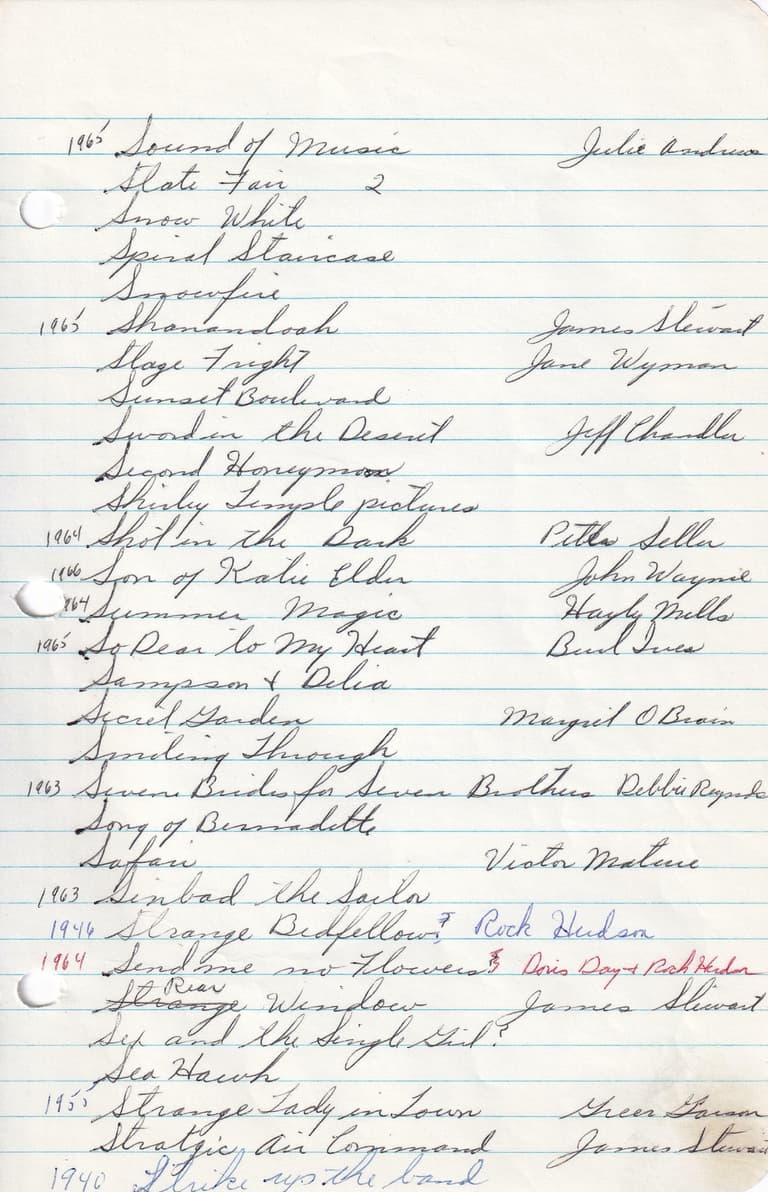 1965 Sound of Music Julie Andrews
State Fair 2
Snow White
Spiral Staircase
Snowfire
1965 Shanandoah James Stewart
Stage Fright Jane Wyman
Sunset Boulevard
Sword in the Desert Jeff Chandler
Second Honeymoon
Shirley Temple pictures
1964 Shot in the Dark Peter Seller
1966 Son of Katie Elder John Wayne
964 Summer Magic Hayly Mills
1965 So Dear to My Heart Burl Ives
Sampson + Delia
Secret Garden Margret O Brain
Smiling Through
1963 Seven Brides for Seven Brothers Debbie Reynolds
Song of Bernadette
Safari Victor Mature
1963 Sinbad the Sailor
1946 Strange Bedfellows Rock Hudson
1964 Send me no Flowers Doris Day + Rock Hudson
Strange Rear Window James Stewart
Sex and the Single Girl?
Sea Hawk
1955 Strange Lady in Town Greer Garson
Stratgic Air Command James Stewart
1940 Strike up the band